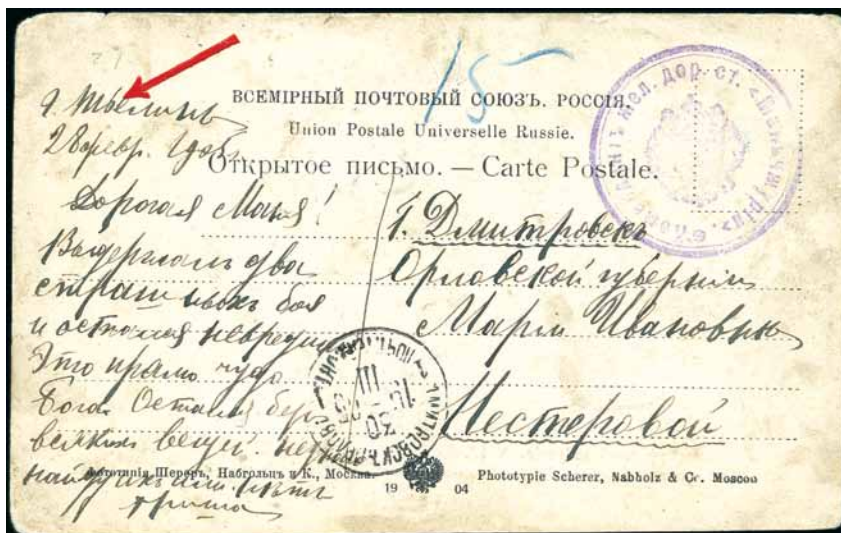 15
г. Тѣлинъ
28 февр. 1905
ВСЕМІРНЫЙ ПОЧТОВЫЙ СОЮЗЪ. РОССІЯ.
Union Postale Universelle Russie.
Открытое письмо. — Carte Postale.
Дорогая Маня!
Выдержалъ два
страшныхъ боя
и остался невредимъ
Это прямо чудо
Бога. Остался безъ
всякихъ вещей.
Гриша
г. Дмитровскъ
Орловской губерніи
Маріи Ивановнѣ
Нестеровой
жел. дор. ст. «Маньчжурія»
ДМИТРОВСКЪ
30
III
Фототипія Шереръ, Набгольцъ и К., Москва.
19 04
Phototypie Scherer, Nabholz & Co. Moscou